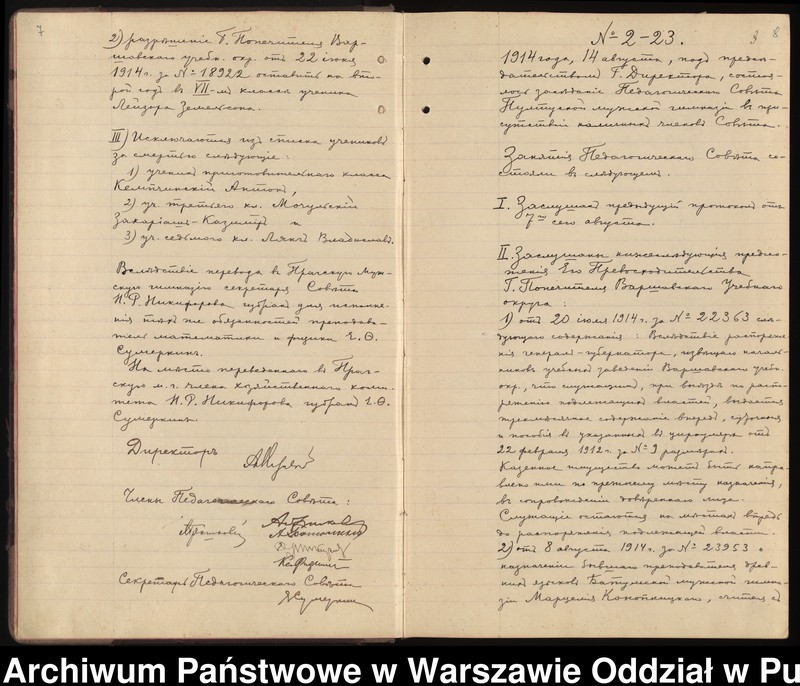 7
2) разрѣшеніе Г. Попечителя Вар-
шавскаго учебн. окр. отъ 22 іюня
1914 г. за № 18922 оставить на вто-
рой годъ в VII-мъ классѣ ученика
Лейзора Земельсона.
III) Исключаются изъ списка учениковъ
за смертью слѣдующіе:
1) ученикъ приготовительнаго класса
Кемпчинскій Антонъ,
2) уч. третьяго кл. Мочульскій
Закаріашъ-Казиміръ и
3) уч. седьмого кл. Лянъ Владиславъ.
Вслѣдствіе перевода в Прагскую муж-
скую гимназію секретаря Совѣта
Н. Р. Никифорова избранъ для исполне-
нія тѣхъ же обязанностей преподава-
тель математики и физики Е. Ѳ.
Сумеркинъ.
На мѣсто переведеннаго въ Праг-
скую м. г. члена хозяйственнаго коми-
тета Н. Р. Никифорова избранъ Е. Ѳ.
Сумеркинъ.
Директоръ
Члены Педагогическаго Совѣта:
Секретарь Педагогическаго Совѣта
Е Сумеркинъ
8
№ 2-23.
1914 года, 14 августа, подъ предсѣ-
дательствомъ Г. Директора, состоя-
лось засѣданіе Педагогическаго Совѣта
Пултуской мужской гимназіи въ при-
сутствіи наличныхъ членовъ Совѣта.
Занятія Педагогическаго Совѣта со-
стояли въ слѣдующемъ.
I. Заслушанъ предыдущій протоколъ отъ
7го сего августа.
II. Заслушаны нижеслѣдующія предло-
женія Его Превосходительства
Г. Попечителя Варшавскаго Учебнаго
округа:
1) отъ 20 іюля 1914 г. за № 22363 слѣ-
дующаго содержанія: Вслѣдствіе распоряже-
нія генералъ-губернатора, извѣщаю началь-
никовъ учебныхъ заведеній Варшавскаго учебн.
окр., что служащимъ, при выѣздѣ по распо-
ряженію подлежащихъ властей, выдается
трехмѣсячное содержаніе впередъ, суточныя
и пособія въ указанномъ въ циркулярѣ отъ
22 февраля 1912 г. за № 9 размѣрахъ.
Казенное имущество можетъ быть направ-
лено или по прежнему мѣсту назначенія,
въ сопровожденіи довѣреннаго лица.
Служащіе остаются на мѣстахъ впредь
до распоряженія подлежащихъ властей.
2) отъ 8 августа 1914 г. за № 23953 о
назначеніи бывшаго преподавателя древ-
нихъ языковъ Батумской мужской гимна-
зіи Марцелія Конопницкаго, считая съ
Archiwum Państwowe w Warszawie Oddział w Pu